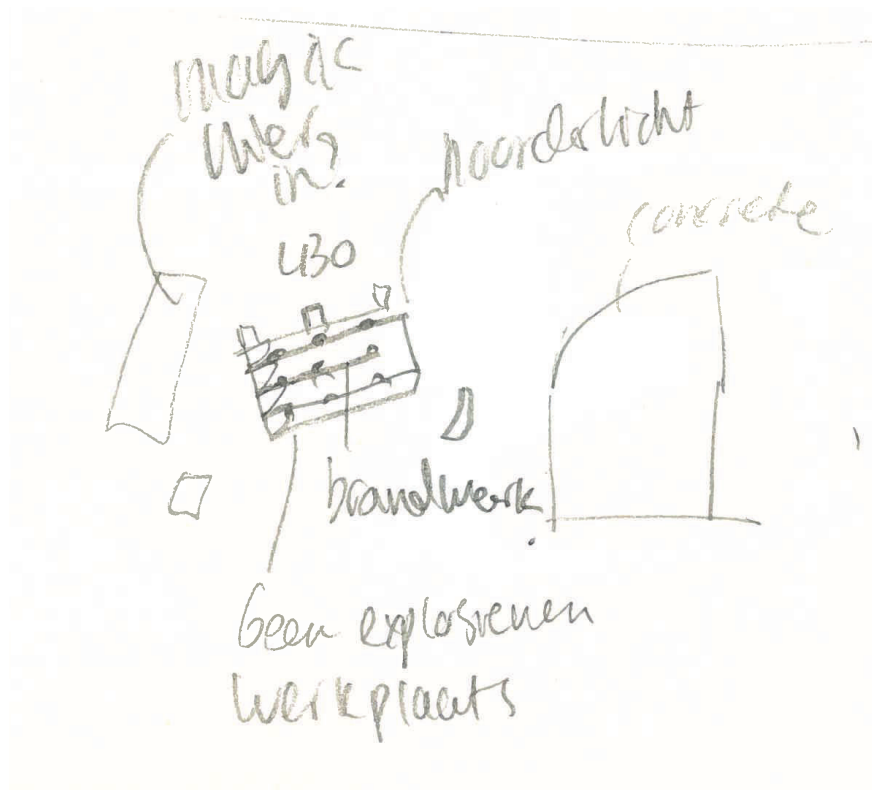 magic
in.
noorderlicht
concrete
430
brandwerk
Geen explosieven
werkplaats